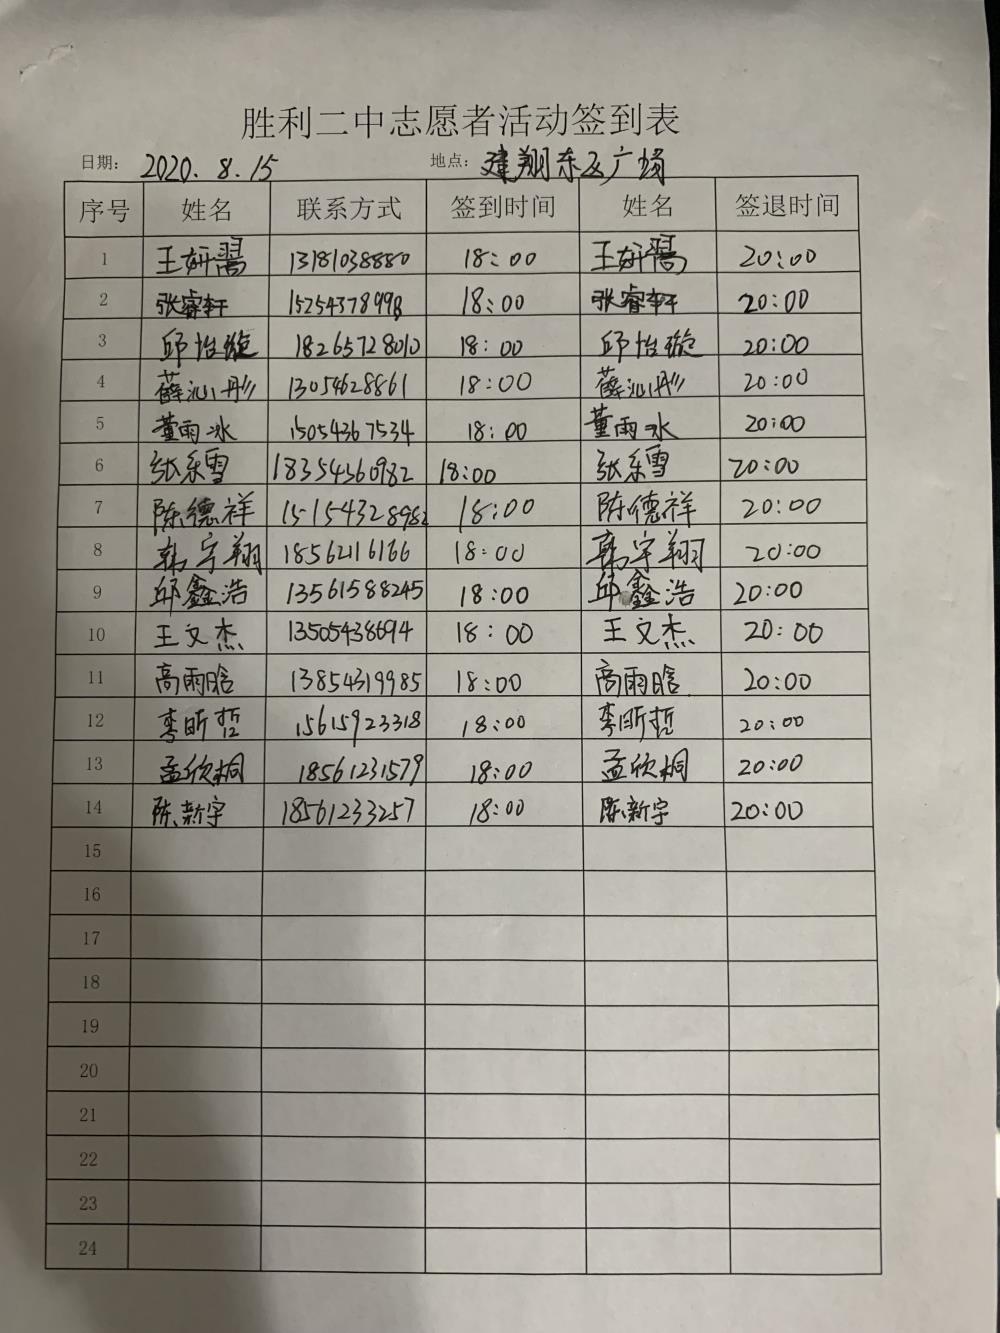 胜利二中志愿者活动签到表
日期： 2020.8.15 地点： 建翔东区广场
序号 姓名 联系方式 签到时间 姓名 签退时间
1 王妍翯 13181038880 18:00 王妍翯 20:00
2 张睿轩 18:00 张睿轩 20:00
3 邱怡璇 18265728010 18:00 邱怡璇 20:00
4 薛沁彤 13054628861 18:00 薛沁彤 20:00
5 董雨冰 15054367534 18:00 董雨冰 20:00
6 张乐雪 18354360982 18:00 张乐雪 20:00
7 陈德祥 15154328982 18:00 陈德祥 20:00
8 韩宇翔 18562116166 18:00 韩宇翔 20:00
9 邱鑫浩 13561588245 18:00 邱鑫浩 20:00
10 王文杰 13505438694 18:00 王文杰 20:00
11 高雨晗 13854319985 18:00 高雨晗 20:00
12 李昕哲 15615923318 18:00 李昕哲 20:00
13 孟欣桐 18561231579 18:00 孟欣桐 20:00
14 陈新宇 18561233257 18:00 陈新宇 20:00
15
16
17
18
19
20
21
22
23
24